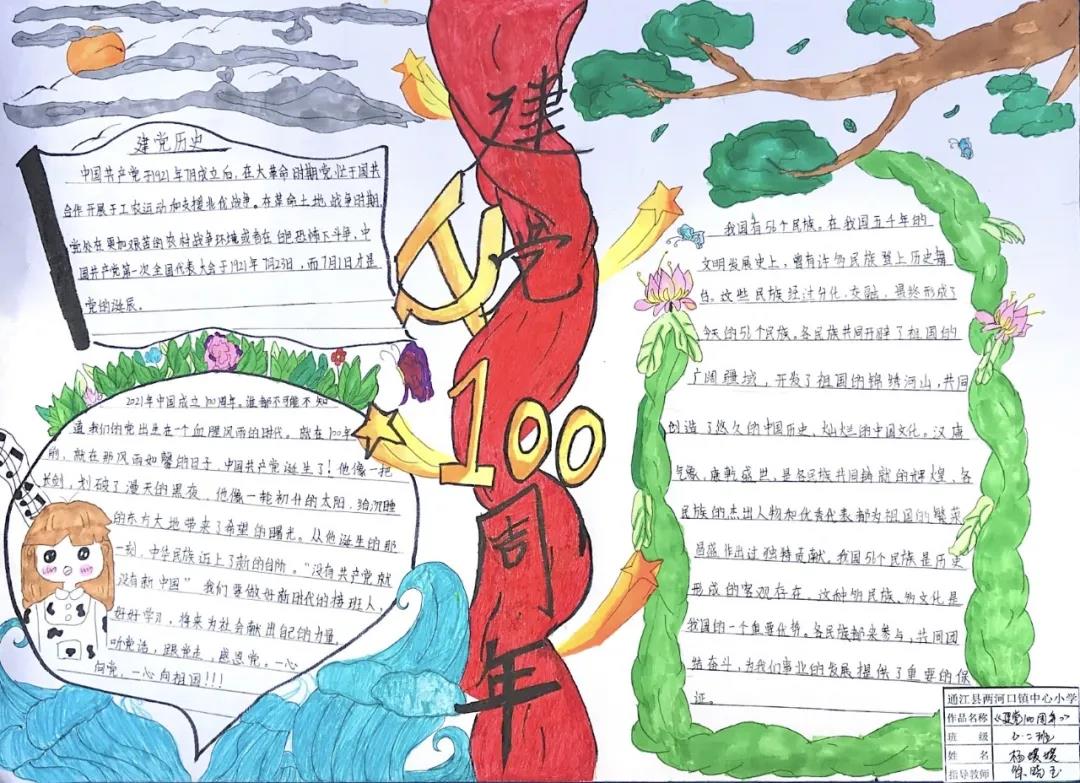 建党历史
中国共产党于1921年7月成立后,在大革命时期党处于国共
合作开展于工农运动和支援北伐战争。在革命土地战争时期,
党处在更加艰苦的农村战争环境或者在白色恐怖下斗争,中
国共产党第一次全国代表大会于1921年7月23日,而7月1日才是
党的诞辰。
2021年中国成立100周年。谁都不可能不知
道我们的党出生在一个血腥风雨的时代。就在100年
前,就在那风雨如磐的日子,中国共产党诞生了!他像一把
长剑,划破了漫天的黑夜,他像一轮初升的太阳,给沉睡
的东方大地带来了希望的曙光。从他诞生的那
一刻,中华民族迈上了新的台阶。“没有共产党就
没有新中国”我们要做好新时代的接班人,
好好学习,将来为社会献出自己的力量,
听党话,跟党走,感恩党。一心
向党,一心向祖国!!!
建党
100
周年
我国有56个民族。在我国五千年的
文明发展史上,曾有许多民族登上历史舞
台。这些民族经过分化、交融,最终形成了
今天的56个民族。各民族共同开辟了祖国的
广阔疆域,开发了祖国的锦绣河山,共同
创造了悠久的中国历史、灿烂的中国文化。汉唐
气象、康乾盛世,是各民族共同铸就的辉煌。各
民族的杰出人物和优秀代表都为祖国的繁荣
昌盛作出过独特贡献。我国56个民族是历史
形成的客观存在,这种多民族、多文化是
我国的一个重要优势。各民族都来参与,共同团
结奋斗,为我们事业的发展提供了重要的保
证。
通江县两河口镇中心小学
作品名称 《建党100周年》
班级 六.二班
姓名 杨媛媛
指导教师